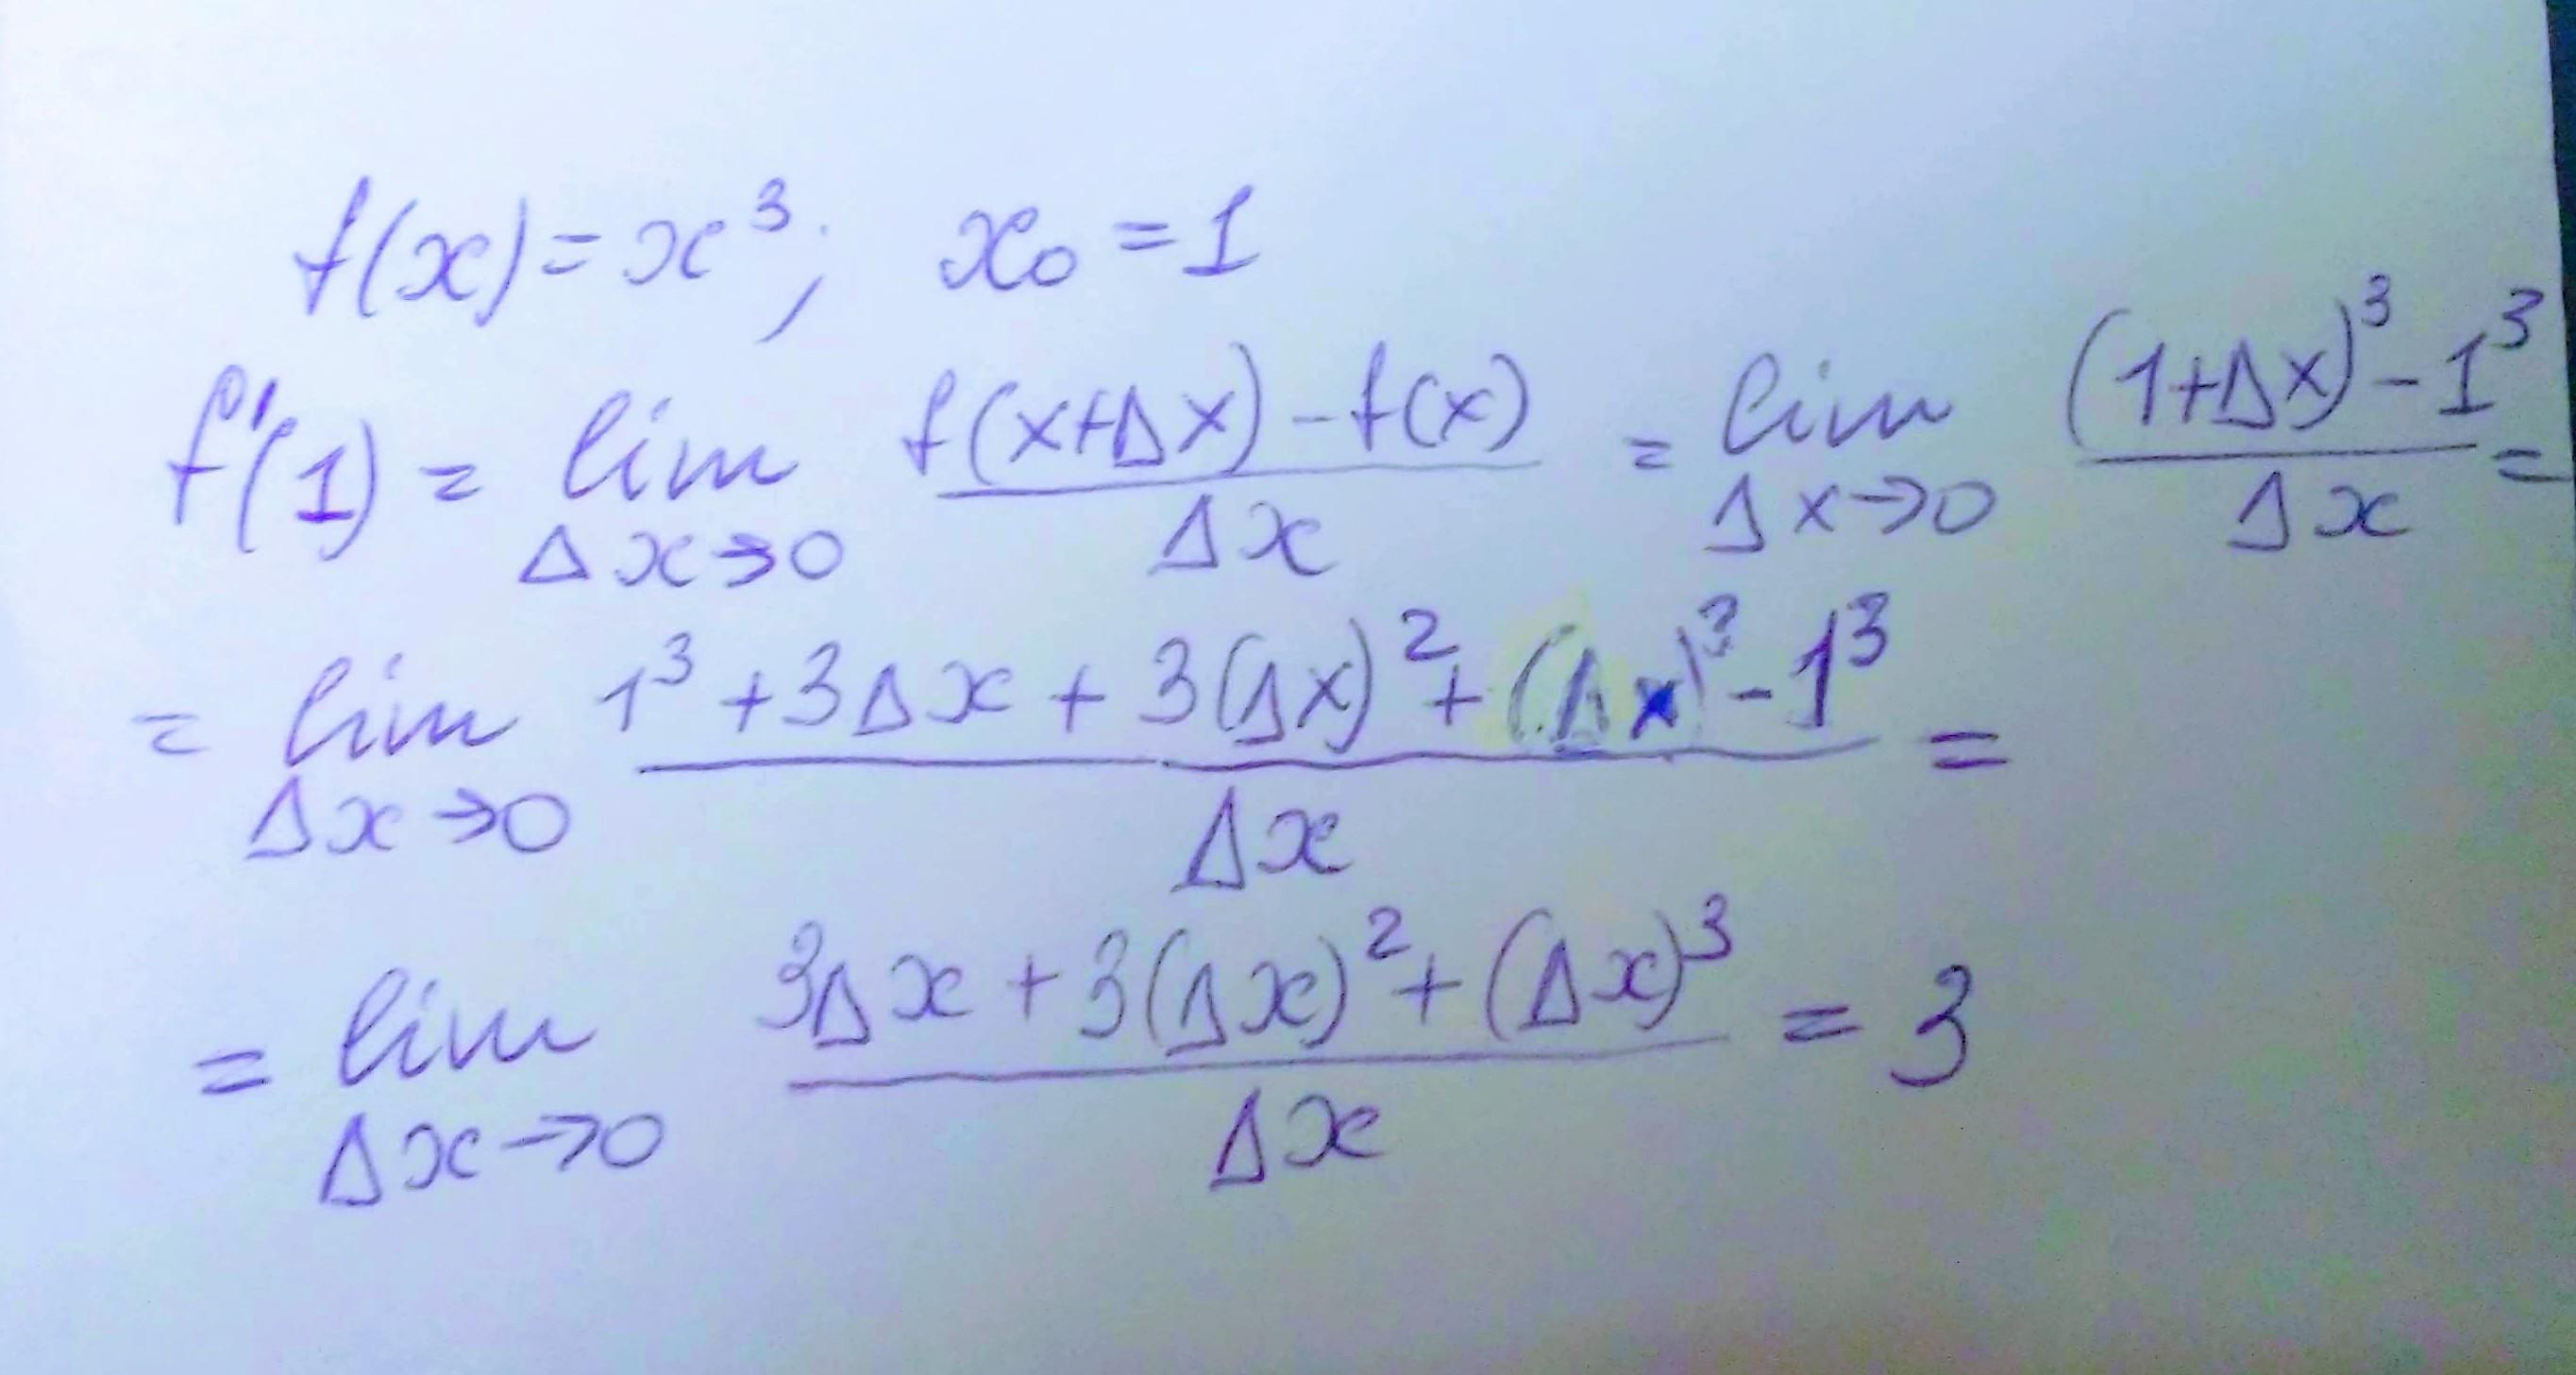 f(x) = x³; x₀ = 1
f'(1) = lim Δx→0 (f(x+Δx) - f(x))/Δx = lim Δx→0 ((1+Δx)³ - 1³)/Δx =
= lim Δx→0 (1³ + 3Δx + 3(Δx)² + (Δx)³ - 1³)/Δx =
= lim Δx→0 (3Δx + 3(Δx)² + (Δx)³)/Δx = 3